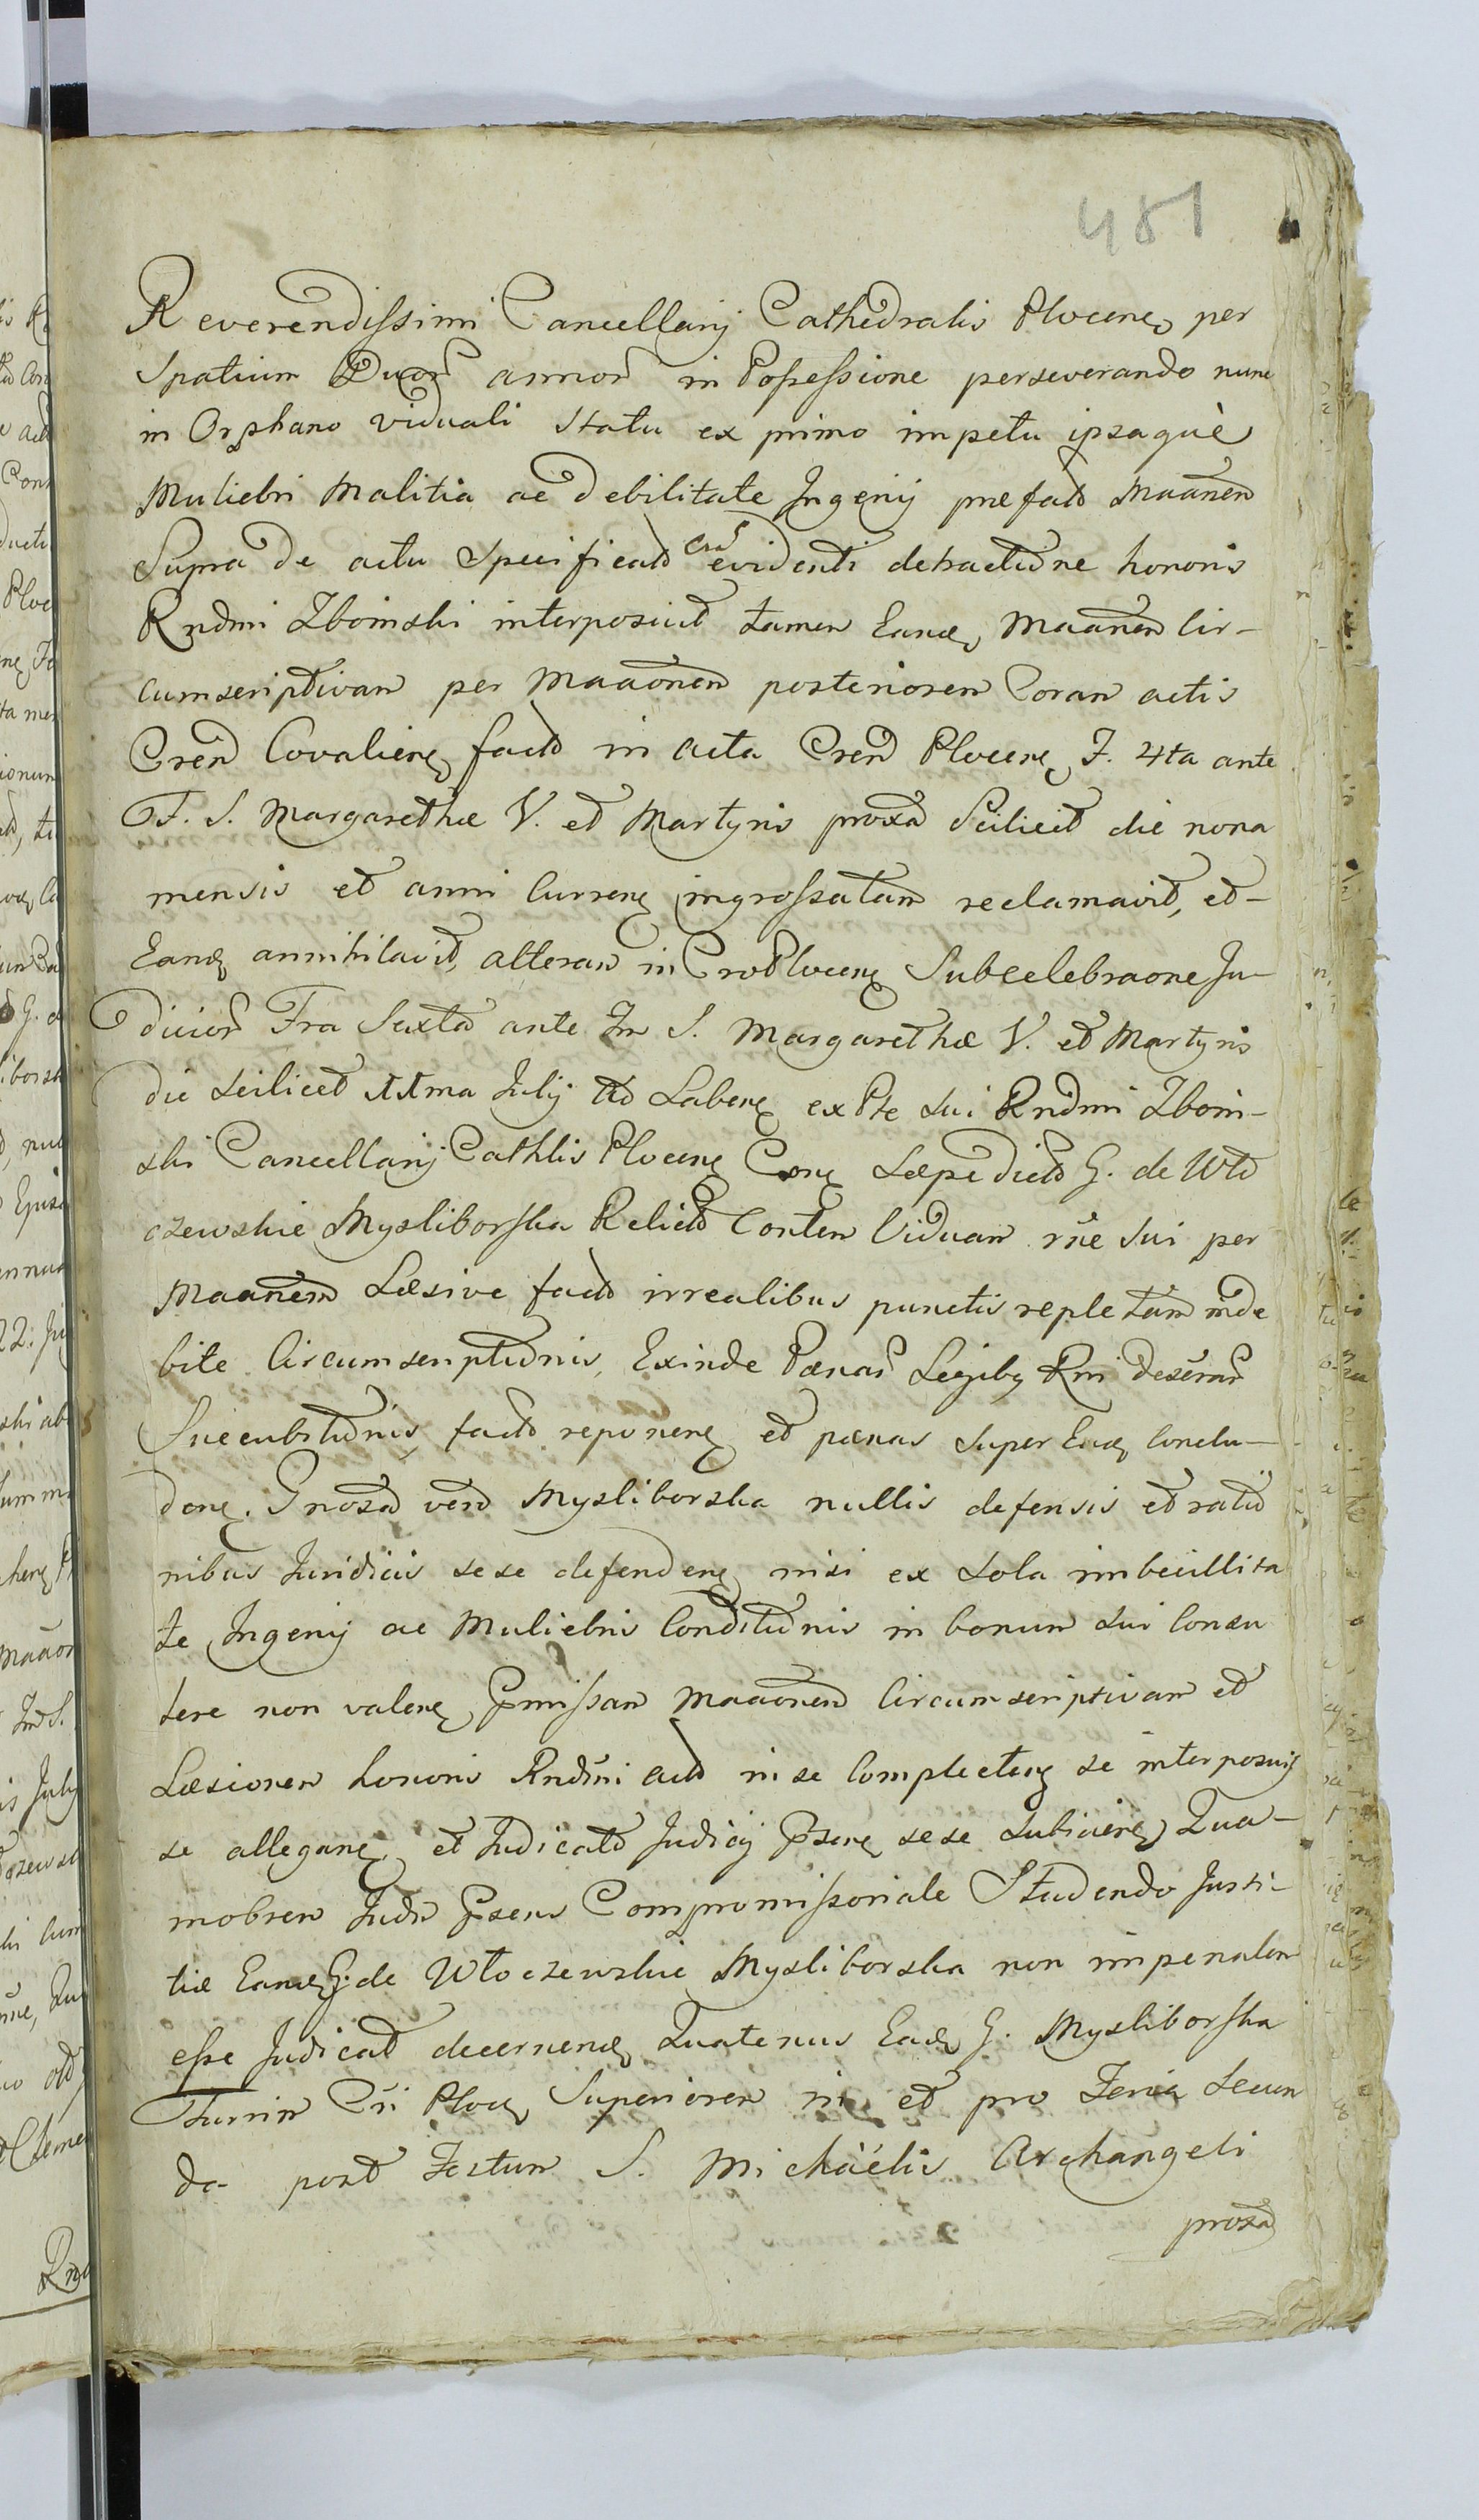 481
Reverendissimi Cancellarij Cathedralis Plocens per
Spatium Duor annor in Possessione perseverando nunc
in Orphano viduali Statu ex primo impetu ipsaquè
Muliebri Malitia ac debilitate Ingenij præfato Maanem
Supra de actu Specificato cum evidenti detractione honoris
Rndmi Zboinski interposuit tamen Eand Maanem Cir-
cumscriptivam per Maaonem posteriorem Coram actis
Cren Covaliens facto in acta Cren Plocens F. 4ta ante
F. S. Margarethæ V. et Martyris proxa Scilicet die nona
mensis et anni Currens ingrossatam reclamavit, et
Eand annihilavit, alteram in Cro Plocens Subcelebraone Ju-
dicior Fra Sexta ante Fm S. Margarethæ V. et Martyris
die scilicet 11ma Julij Labens ex Pte Sui Rndmi Zboin-
ski Cancellarij Cathlis Plocens Cons Sæpe dicto G. de Wło
czewskie Mysliborska Relicto Conten Viduam rne Sui per
Maanem Læsive facto irrealibus punctis repletam inde
bite Circumscriptionis, Exinde Pænar Legibus Rni
Succubitionis facto reponens et pænas super Eand Conclu-
dens. Gnosa vero Mysliborska nullis defensis et ratio
nibus Juridicis sese defendens nisi ex Sola imbecillita
te Ingenij ac Muliebris Conditionis in bonum Sui Consu
lere non valens Præmissam Maaonem Circumscriptivam et
Læsionem honoris Rndmi in se Complectens se interposuis
se allegans, et Judicato Judicij Præsens sese Subiiciens, Qua-
mobrem Judm Præsens Compromissoriale Studendo Justi-
tiæ Eand G. de Włoczewskie Mysliborska non impenalem
esse Judicat decernend Quatenus Ead G. Mysliborska
Turrim Cri Ploc Superiorem in et pro Feria Secun
da post Festum S. Michäélis Archangeli
proxa